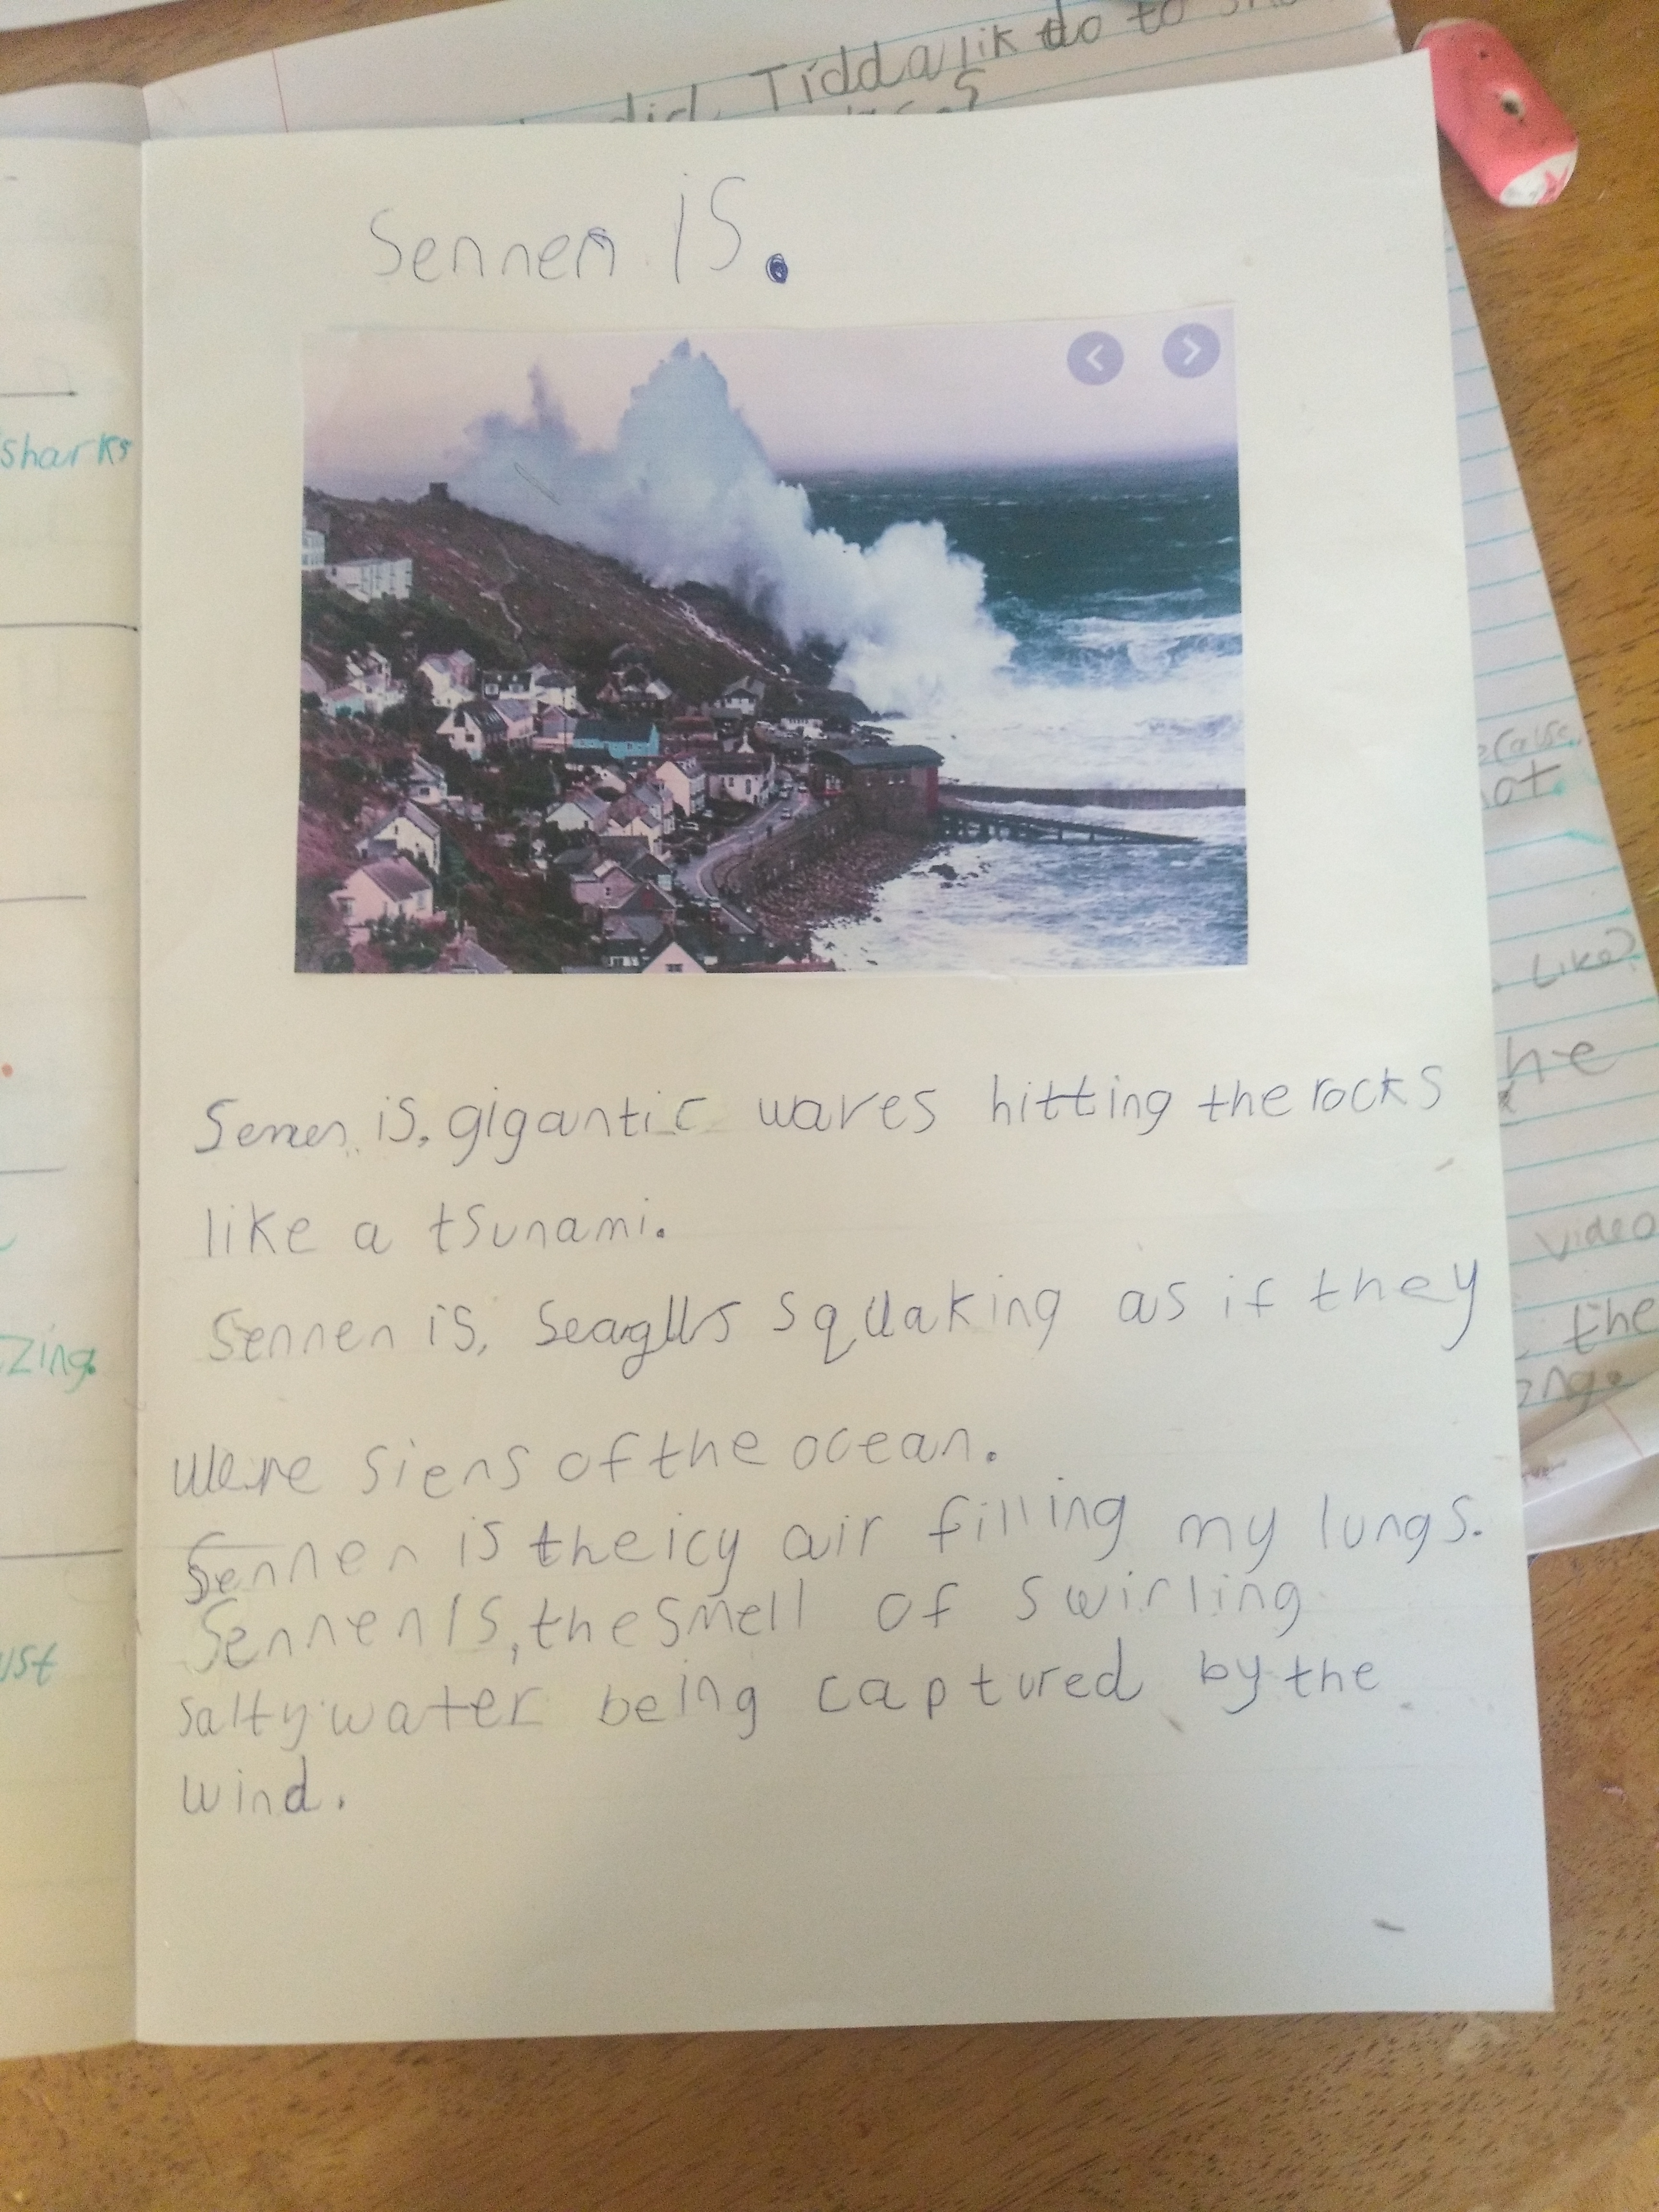 did Tiddalik do to
Sennen is.
Sennen is, gigantic waves hitting the rocks
like a tsunami.
Sennen is, Seaglls squaking as if they
were siens of the ocean.
Sennen is the icy air filling my lungs.
Sennen Is, the smell of swirling
salty water being captured by the
wind.
sharks
zing.
ust
ot.
Like?
he
video
the